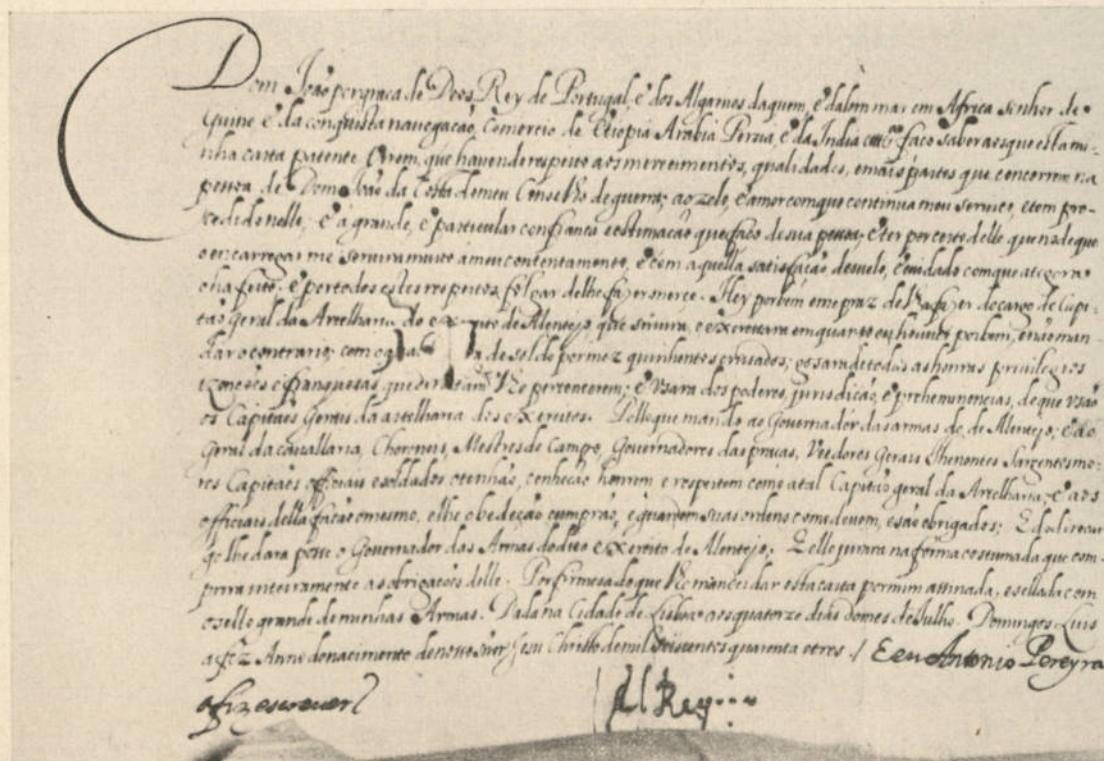 Dom João por graça de Deos Rey de Portugal, e dos Algarues daquem, e dalem mar em Africa senhor de
Guine e da conquista navegação, Comercio de Etiopia Arabia Persia, e da India etc.ª faço saber aos que esta mi-
nha carta patente virem, que havendo respeito aos merecimentos, qualidades, e mais partes que concorrem na
pessoa de Dom João da Costa do meu Conselho de guerra; ao zelo, e amor com que continua meu serviço, e tem pro-
cedido nelle; e á grande, e particular confiança e estimação que faço de sua pessoa; e ter por certo delle que no de que
o encarregar me seruira muito a meu contentamento, e com aquella satisfação desuelo, e cuidado com que ategora
o ha feito; e por todos estes respeitos folgar de lhe fazer merce. Hey por bem e me praz de o fazer do cargo de Capi-
tão geral da Artelharia do exercito de Alentejo que seruira, e exercitara em quanto eu houuer por bem, e não man-
dar o contrario; com o qual de soldo por mez quinhentos cruzados; gosara de todas as honras priuilegios
izenções e franquesas, que direitam.te lhe pertencerem; e vsara dos poderes, jurisdição, e preheminencias, de que vsão
os Capitães Gerais da artelharia dos exercitos. Pello que mando ao Gouernador das armas de Alentejo; e ao
Geral da cauallaria, Choroneis, Mestres de Campo, Gouernadores das praças, Veedores Gerais Thenentes Sargentos mo-
res Capitães officiais e soldados o tenhão, conheção honrem e respeitem como a tal Capitão geral da Artelharia; e aos
officiais della fação o mesmo, e lhe obedeção cumprão, e guardem suas ordens como deuem, e são obrigados; E do dito car-
go lhe dara posse o Gouernador das Armas do dito exercito de Alentejo; E elle jurara na forma costumada que com-
prira inteiramente as obrigações delle. Por firmesa do que lhe mandei dar esta carta por mim assinada, e sellada com
o sello grande de minhas Armas. Dada na Cidade de Lisboa aos quatorze dias do mes de Julho. Domingos Luis
a fez Anno do nacimento de nosso snor Jesu Christo de mil seiscentos quarenta e tres. / E eu Antonio Pereyra
a fiz escreuer
el Rey